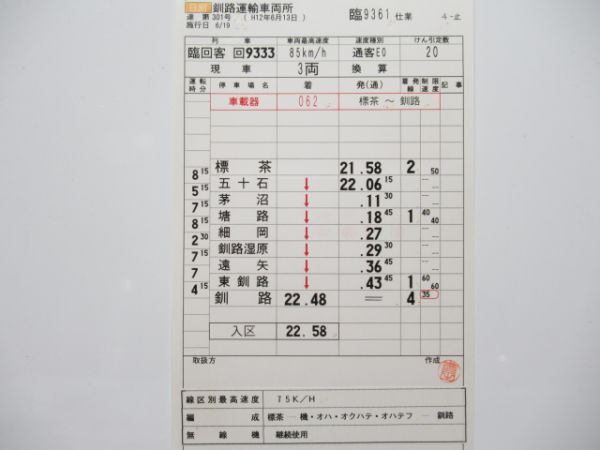 日勤 釧路運輸車両所
達 第 301号 ( H12年6月13日 )
施行日 6/19
臨9361 仕業 4-止
列車 車両最高速度 速度種別 けん引定数
臨回客 回9333 85km/h 通客E0 20
現車 3両 換算
運転時分 停車場名 着 発(通) 着発線 制限速度 記事
車載器 062 標茶 ~ 釧路
標茶 21.58 2 50
8 15
五十石 ↓ 22.06 15
5 15
茅沼 ↓ .11 30
7 15
塘路 ↓ .18 45 1 40 40
8 15
細岡 ↓ .27
2 30
釧路湿原 ↓ .29 30
7 15
遠矢 ↓ .36 45
7
東釧路 ↓ .43 45 1 60 60
4 15
釧路 22.48 = 4 35
入区 22.58
取扱方 作成
線区別最高速度 75K/H
編成 標茶 ― 機・オハ・オクハテ・オハテフ ― 釧路
無線機 継続使用